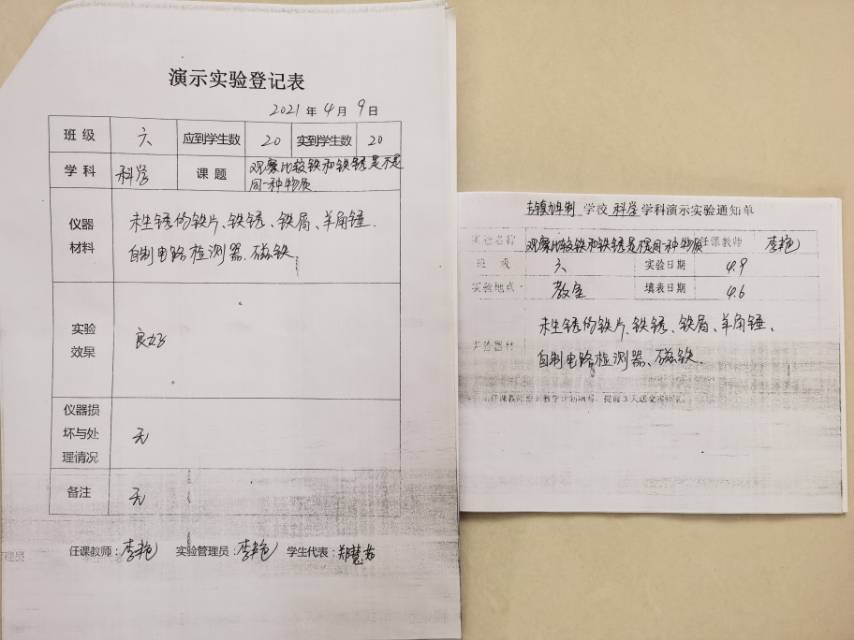 演示实验登记表
2021年4月9日
班级 六 应到学生数 20 实到学生数 20
学科 科学 课题 观察比较铁和铁锈是不是
同一种物质
仪器
材料
未生锈的铁片、铁锈、铁屑、羊角锤.
自制电路检测器.磁铁.
实验
效果
良好
仪器损
坏与处
理情况
无
备注 无
任课教师:李艳 实验管理员:李艳 学生代表:郑慧
管理员
学校 科学 学科演示实验通知单
实验名称 观察比较铁和铁锈是不是同一种物质 任课教师 李艳
班级 六 实验日期 4.9
实验地点 教室 填表日期 4.6
实验器材
未生锈的铁片、铁锈、铁屑、羊角锤、
自制电路检测器、磁铁.